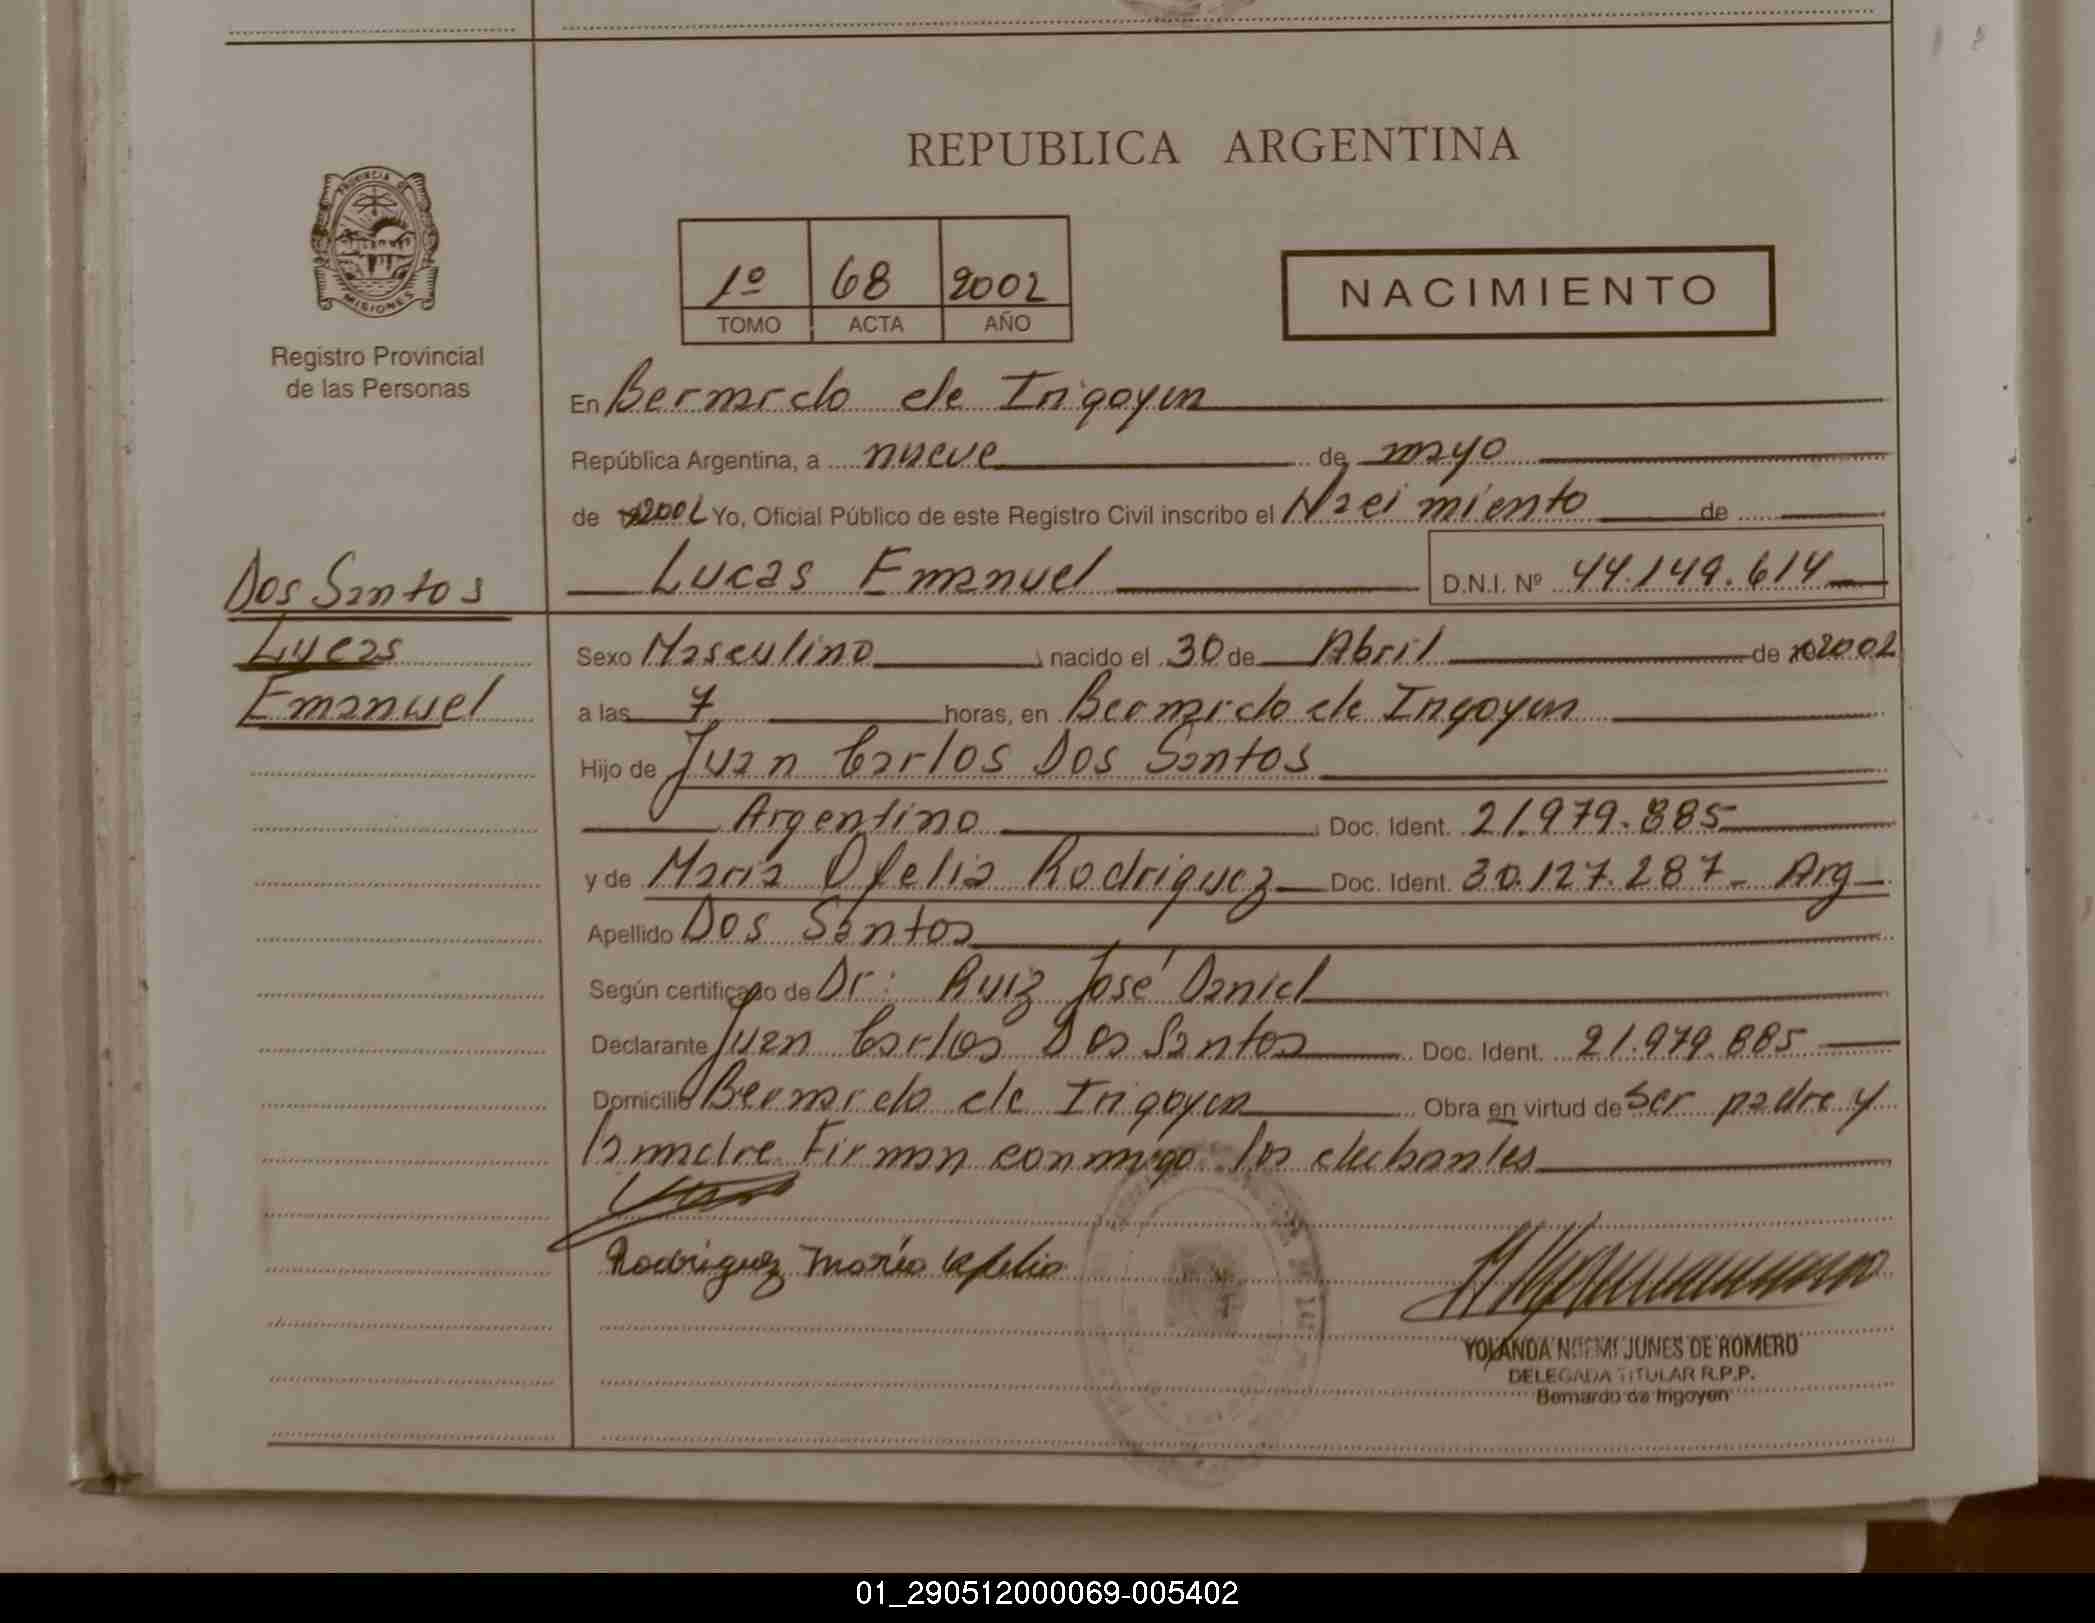 REPUBLICA ARGENTINA
PROVINCIA DE
MISIONES
Registro Provincial
de las Personas
1º 68 2002
TOMO ACTA AÑO
NACIMIENTO
En Bernardo de Irigoyen
República Argentina, a nueve de mayo
de 2002 Yo, Oficial Público de este Registro Civil inscribo el Nacimiento de
Lucas Emanuel D.N.I. Nº 44.149.614
Dos Santos
Lucas
Emanuel
Sexo Masculino nacido el 30 de Abril de 2002
a las 7 horas, en Bernardo de Irigoyen
Hijo de Juan Carlos Dos Santos
Argentino Doc. Ident. 21.979.885
y de Maria Ofelia Rodriguez Doc. Ident. 30.127.287 - Arg
Apellido Dos Santos
Según certificado de Dr: Ruiz José Daniel
Declarante Juan Carlos Dos Santos Doc. Ident. 21.979.885
Domicilio Bernardo de Irigoyen Obra en virtud de ser padre y
la madre Firman conmigo los
Rodriguez Maria Ofelia
YOLANDA NOEMI JUNES DE ROMERO
DELEGADA TITULAR R.P.P.
Bernardo de Irigoyen
01_290512000069-005402